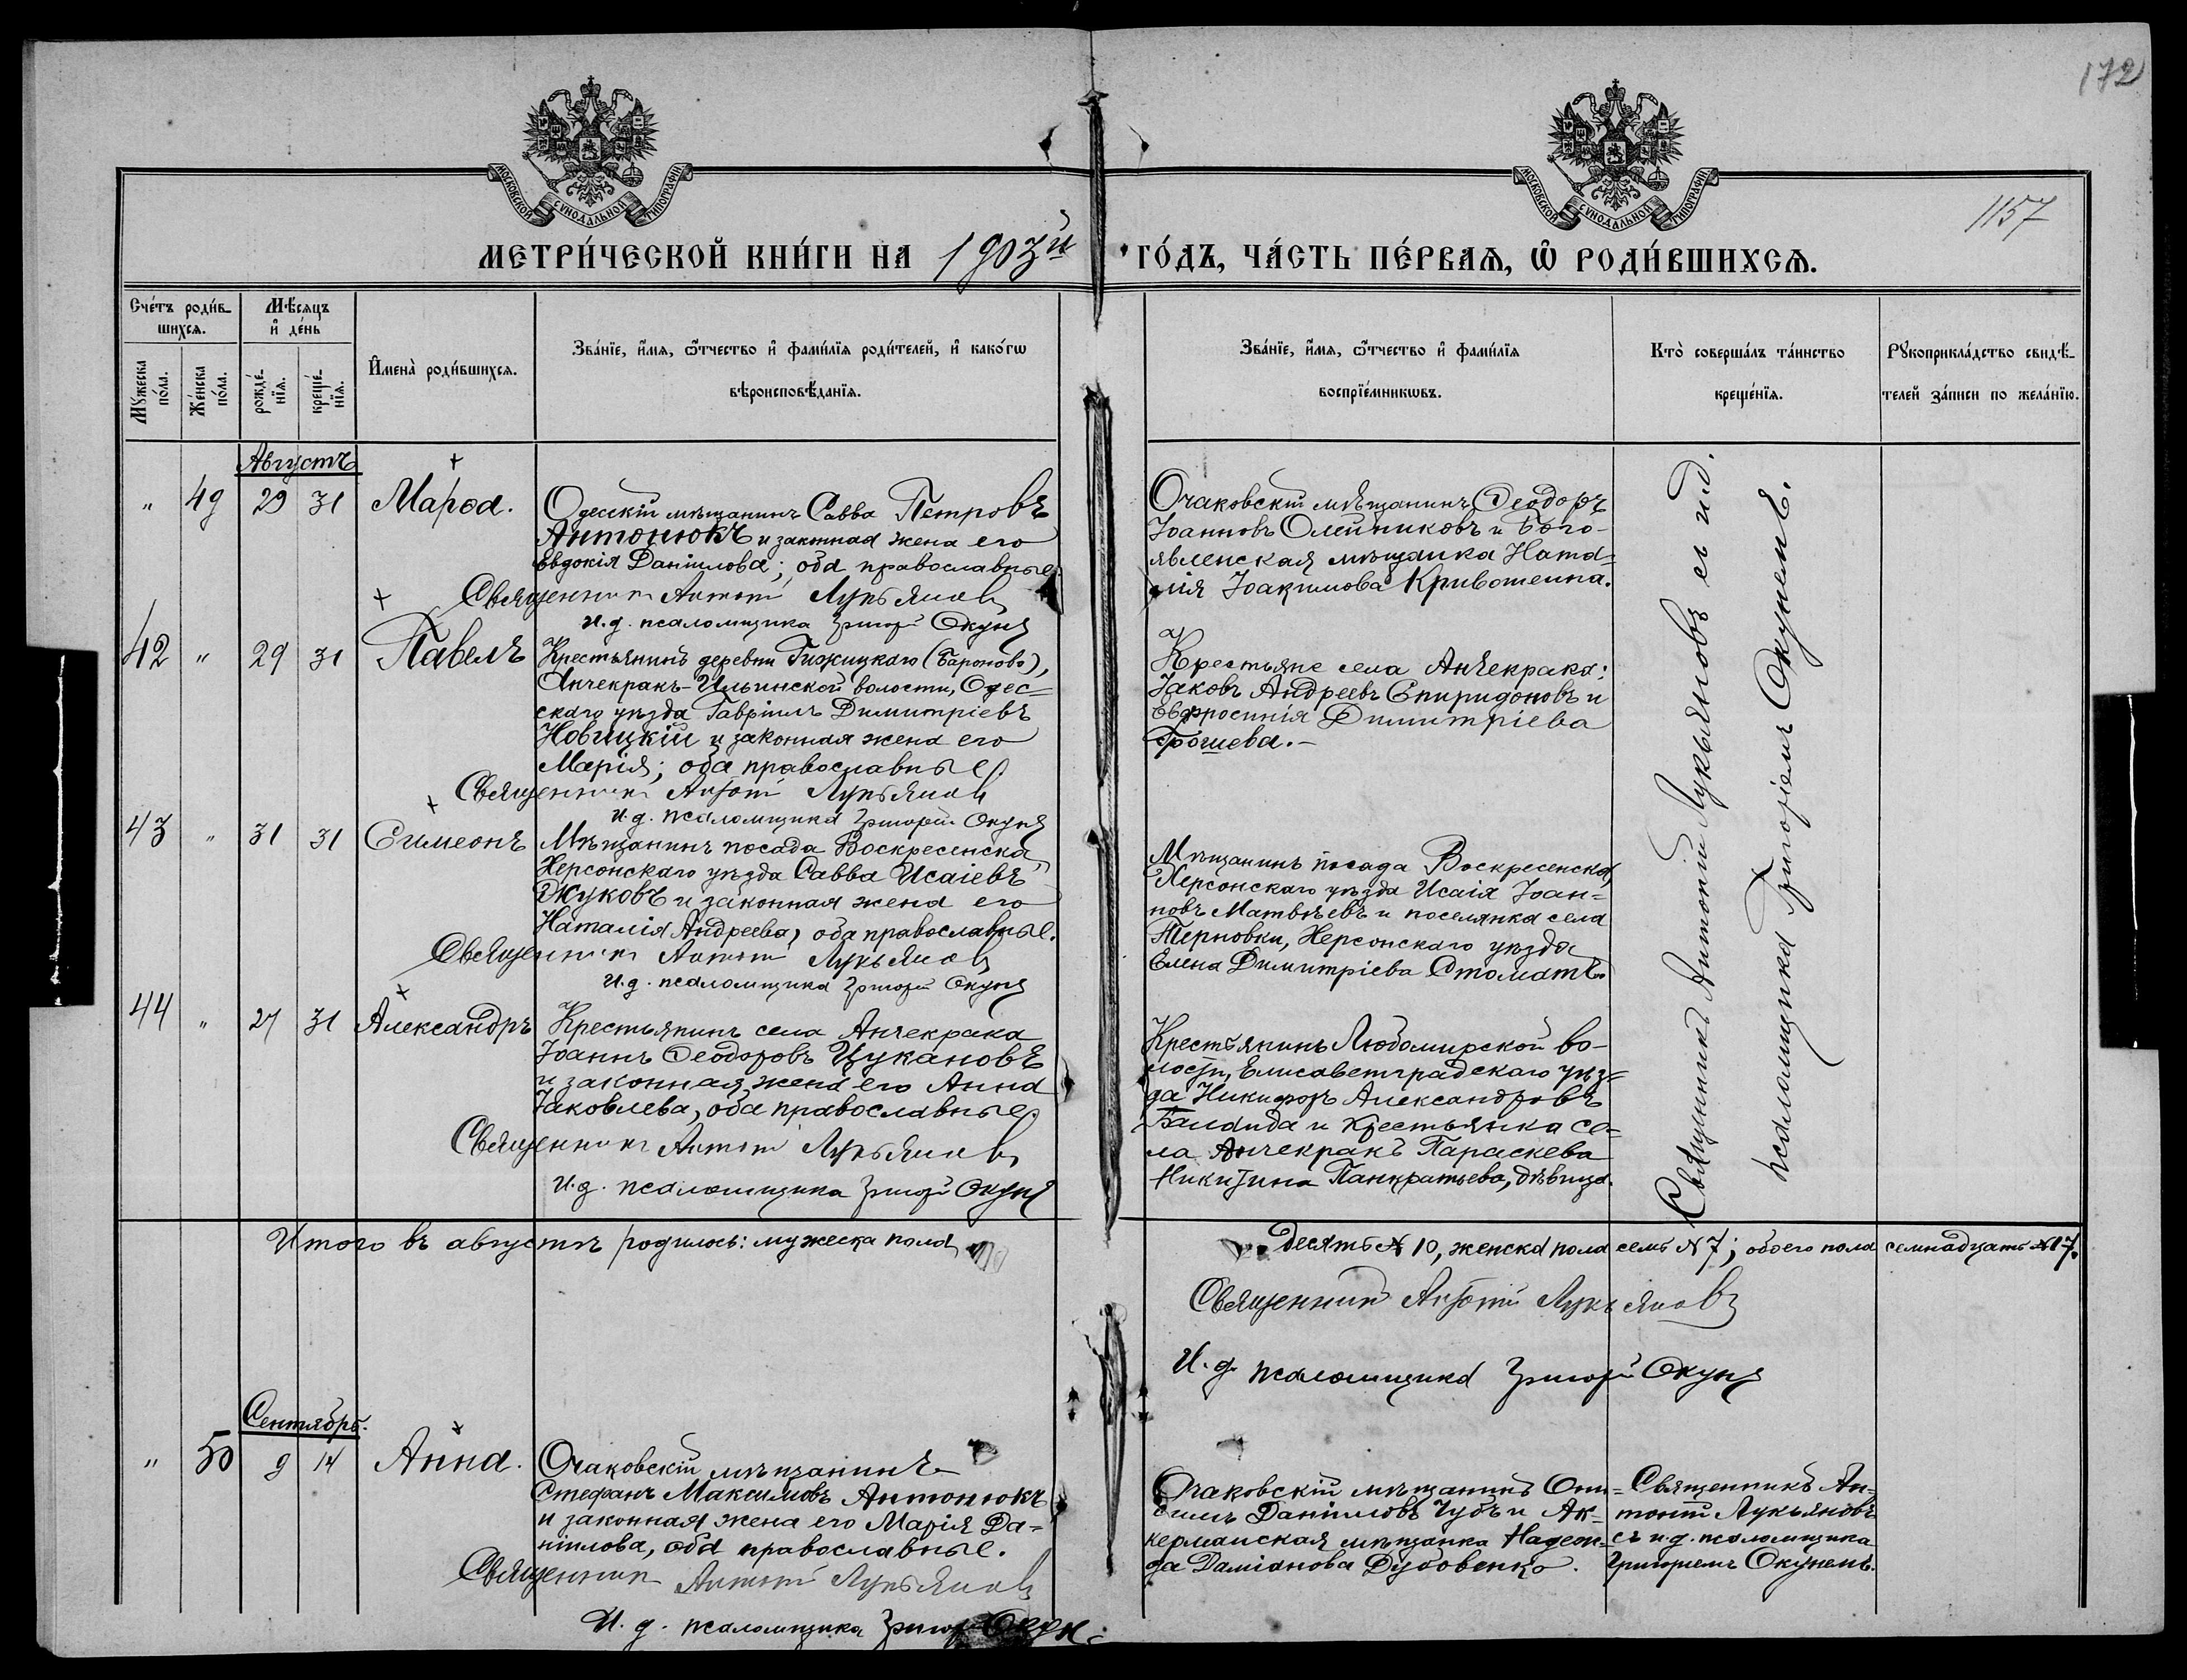 172
1157
МОСКОВСКОЙ СУНОДАЛЬНОЙ ТИПОГРАФІИ
МОСКОВСКОЙ СУНОДАЛЬНОЙ ТИПОГРАФІИ
МЕТРИ́ЧЕСКОЙ КНИ́ГИ НА 1903й ГО́ДЪ, ЧА́СТЬ ПЕ́РВАѦ, Ѡ РОДИ́ВШИХСѦ.
Сче́тъ роди́в-
шихсѧ.
Мꙋжеска
по́ла.
Же́нска
по́ла.
Мѣ́сѧцъ
и҆ де́нь
рожде́-
нїѧ.
креще́-
нїѧ.
И҆мена̀ роди́вшихсѧ.
Зва́нїе, и҆́мѧ, ѻ҆́тчество и҆ фами́лїѧ роди́телей, и҆ како́гѡ
вѣроисповѣ́данїѧ.
Зва́нїе, и҆́мѧ, ѻ҆́тчество и҆ фами́лїѧ
воспрїе́мникѡвъ.
Кто̀ соверша́лъ та́инство
креще́нїѧ.
Рꙋкоприкла́дство свидѣ́-
телей за́писи по жела́нїю.
Августъ
" 49 29 31 Марѳа.
Одесскій мѣщанинъ Савва Петровъ
Антонюкъ и законная жена его
Евдокія Даніилова; оба православные.
Священникъ Антоній Лукьяновъ
и.д. псаломщика Григорій Окунь
Очаковскій мѣщанинъ Ѳеодоръ
Іоанновъ Олейниковъ и Бого-
явленская мѣщанка Ната-
лія Іоакимова Кривошеина.
42 " 29 31 Павелъ
Крестьянинъ деревни Гижицкаго (Бароново),
Анчекракъ-Ильинской волости, Одес-
скаго уѣзда Гавріилъ Димитріевъ
Новицкій и законная жена его
Марія; оба православные.
Священникъ Антоній Лукьяновъ
и.д. псаломщика Григорій Окунь
Крестьяне села Анчекрака:
Іаковъ Андреевъ Спиридоновъ и
Евфросинія Димитріева
43 " 31 31 Симеонъ
Мѣщанинъ посада Воскресенска,
Херсонскаго уѣзда Савва Исаіевъ
Жуковъ и законная жена его
Наталія Андреева, оба православные.
Священникъ Антоній Лукьяновъ
и.д. псаломщика Григорій Окунь
Мѣщанинъ посада Воскресенска,
Херсонскаго уѣзда Исаія Іоан-
новъ Матвѣевъ и поселянка села
Терновки, Херсонскаго уѣзда
Елена Димитріева Стоматъ.
44 " 27 31 Александръ
Крестьянинъ села Анчекрака
Іоаннъ Ѳеодоровъ Цукановъ
и законная жена его Анна
Іаковлева, оба православные.
Священникъ Антоній Лукьяновъ
и.д. псаломщика Григорій Окунь
Крестьянинъ Любомирской во-
лости, Елисаветградскаго уѣз-
да Никифоръ Александровъ
и крестьянка се-
ла Анчекракъ Параскева
Никитина Панкратьева, дѣвица.
Священникъ Антоній Лукьяновъ съ и.д.
псаломщика Григоріемъ Окунемъ.
Итого въ августѣ родилось: мужеска пола десять № 10, женска пола семь № 7; обоего пола семнадцать № 17.
Священникъ Антоній Лукьяновъ
И.д. псаломщика Григорій Окунь
Сентябрь.
" 50 9 14 Анна.
Очаковскій мѣщанинъ
Стефанъ Максимовъ Антонюкъ
и законная жена его Марія Да-
ніилова, оба православные.
Священникъ Антоній Лукьяновъ
И.д. псаломщика Григорій Окунь
Очаковскій мѣщанинъ Они-
симъ Даніиловъ Чубъ и Ак-
керманская мѣщанка Надеж-
да Даміанова Дубовенко.
Священникъ Ан-
тоній Лукьяновъ
съ и.д. псаломщика
Григоріемъ Окунемъ.